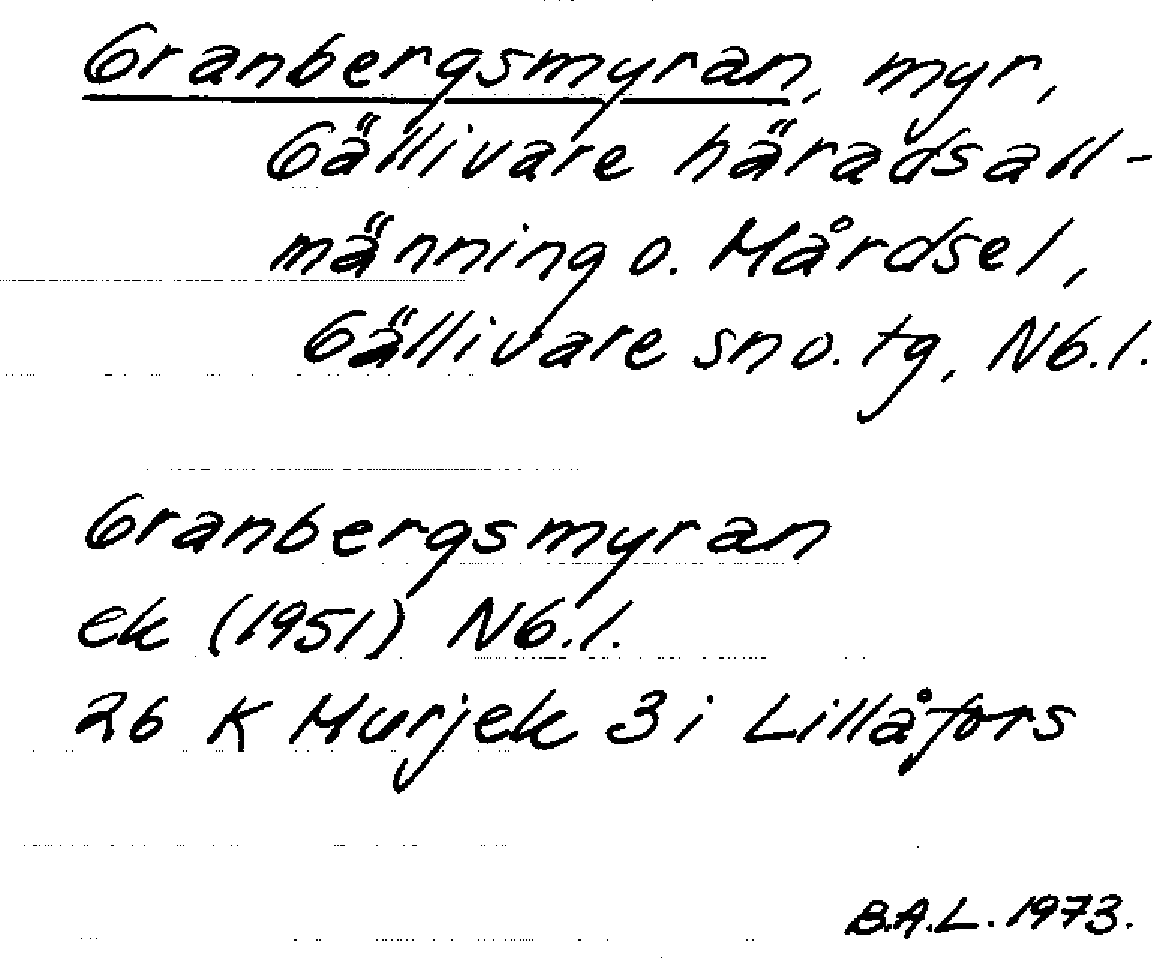 Granbergsmyran, myr,
Gällivare häradsall-
männing o. Mårdsel,
Gällivare sn o. tg, Nb. l.
Granbergsmyran
ek (1951) Nb. l.
26 K Murjek 3i Lillåfors
B.A.L. 1973.